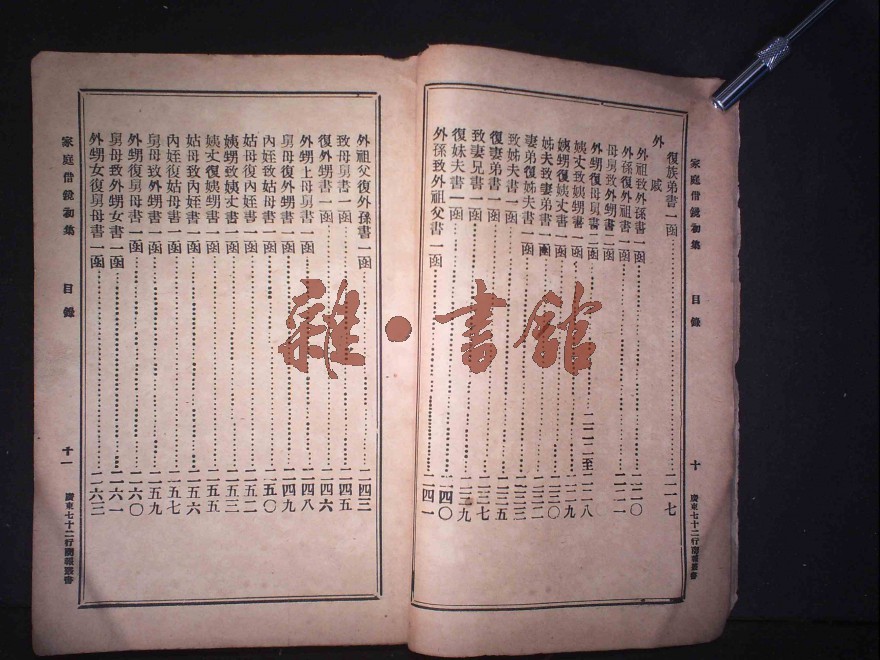 家庭借鏡初集 目錄 十 廣東七十二行商報叢書
復族弟書一函……二一七
外戚
外祖致外孫書一函……二二〇
外孫復外祖書一函……二二一
母舅致外甥書二函
外甥復母舅書二函……二二二至二二八
姨丈致姨甥書一函……二二九
姨甥復姨丈書一函……二三〇
姊夫致妻弟書一函……二三二
妻弟復姊夫書一函……二三三
致姊夫書一函……二三五
復妻弟書一函……二三七
致妻兄書一函……二三九
復妹夫書一函……二四〇
外孫致外祖父書一函……二四一
外祖父復外孫書一函……二四三
致母舅書一函……二四五
復外甥書一函……二四六
外甥上母舅書一函……二四八
舅母復外甥書一函……二四九
內姪致姑母書一函……二五〇
姑母復內姪書一函……二五二
姨甥致姨丈書一函……二五三
姨丈復姨甥書一函……二五五
姑母致內姪書一函……二五六
內姪復姑母書一函……二五七
舅母致外甥書一函……二五九
外甥復舅母書一函……二六〇
舅母致外甥女書一函……二六一
外甥女復舅母書一函……二六三
家庭借鏡初集 目錄 十一 廣東七十二行商報叢書
雜·書館